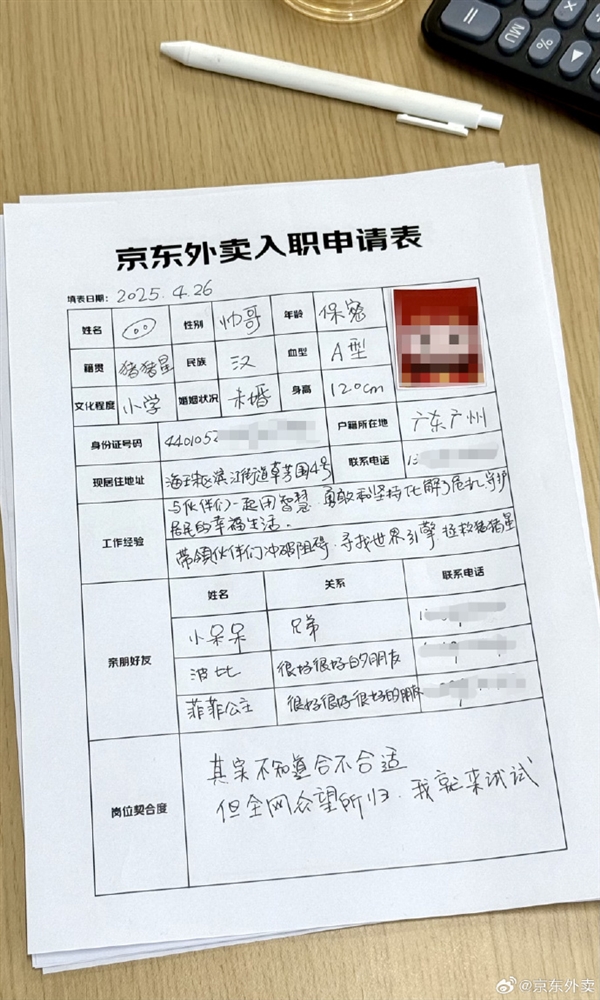 京东外卖入职申请表
填表日期： 2025.4.26
姓名 性别 帅哥 年龄 保密
籍贯 猪猪星 民族 汉 血型 A型
文化程度 小学 婚姻状况 未婚 身高 120cm
身份证号码 4401052 户籍所在地 广东广州
现居住地址 海珠区滨江街道草芳围4号 联系电话 13
工作经验
与伙伴们一起用智慧、勇敢和坚持化解了危机，守护
居民的幸福生活。
带领伙伴们冲破阻碍，寻找世界引擎，拯救猪猪星
亲朋好友
姓名 关系 联系电话
小呆呆 兄弟
波比 很好很好的朋友
菲菲公主 很好很好很好的朋友
岗位契合度
其实不知道合不合适
但全网众望所归，我就来试试
%
@京东外卖